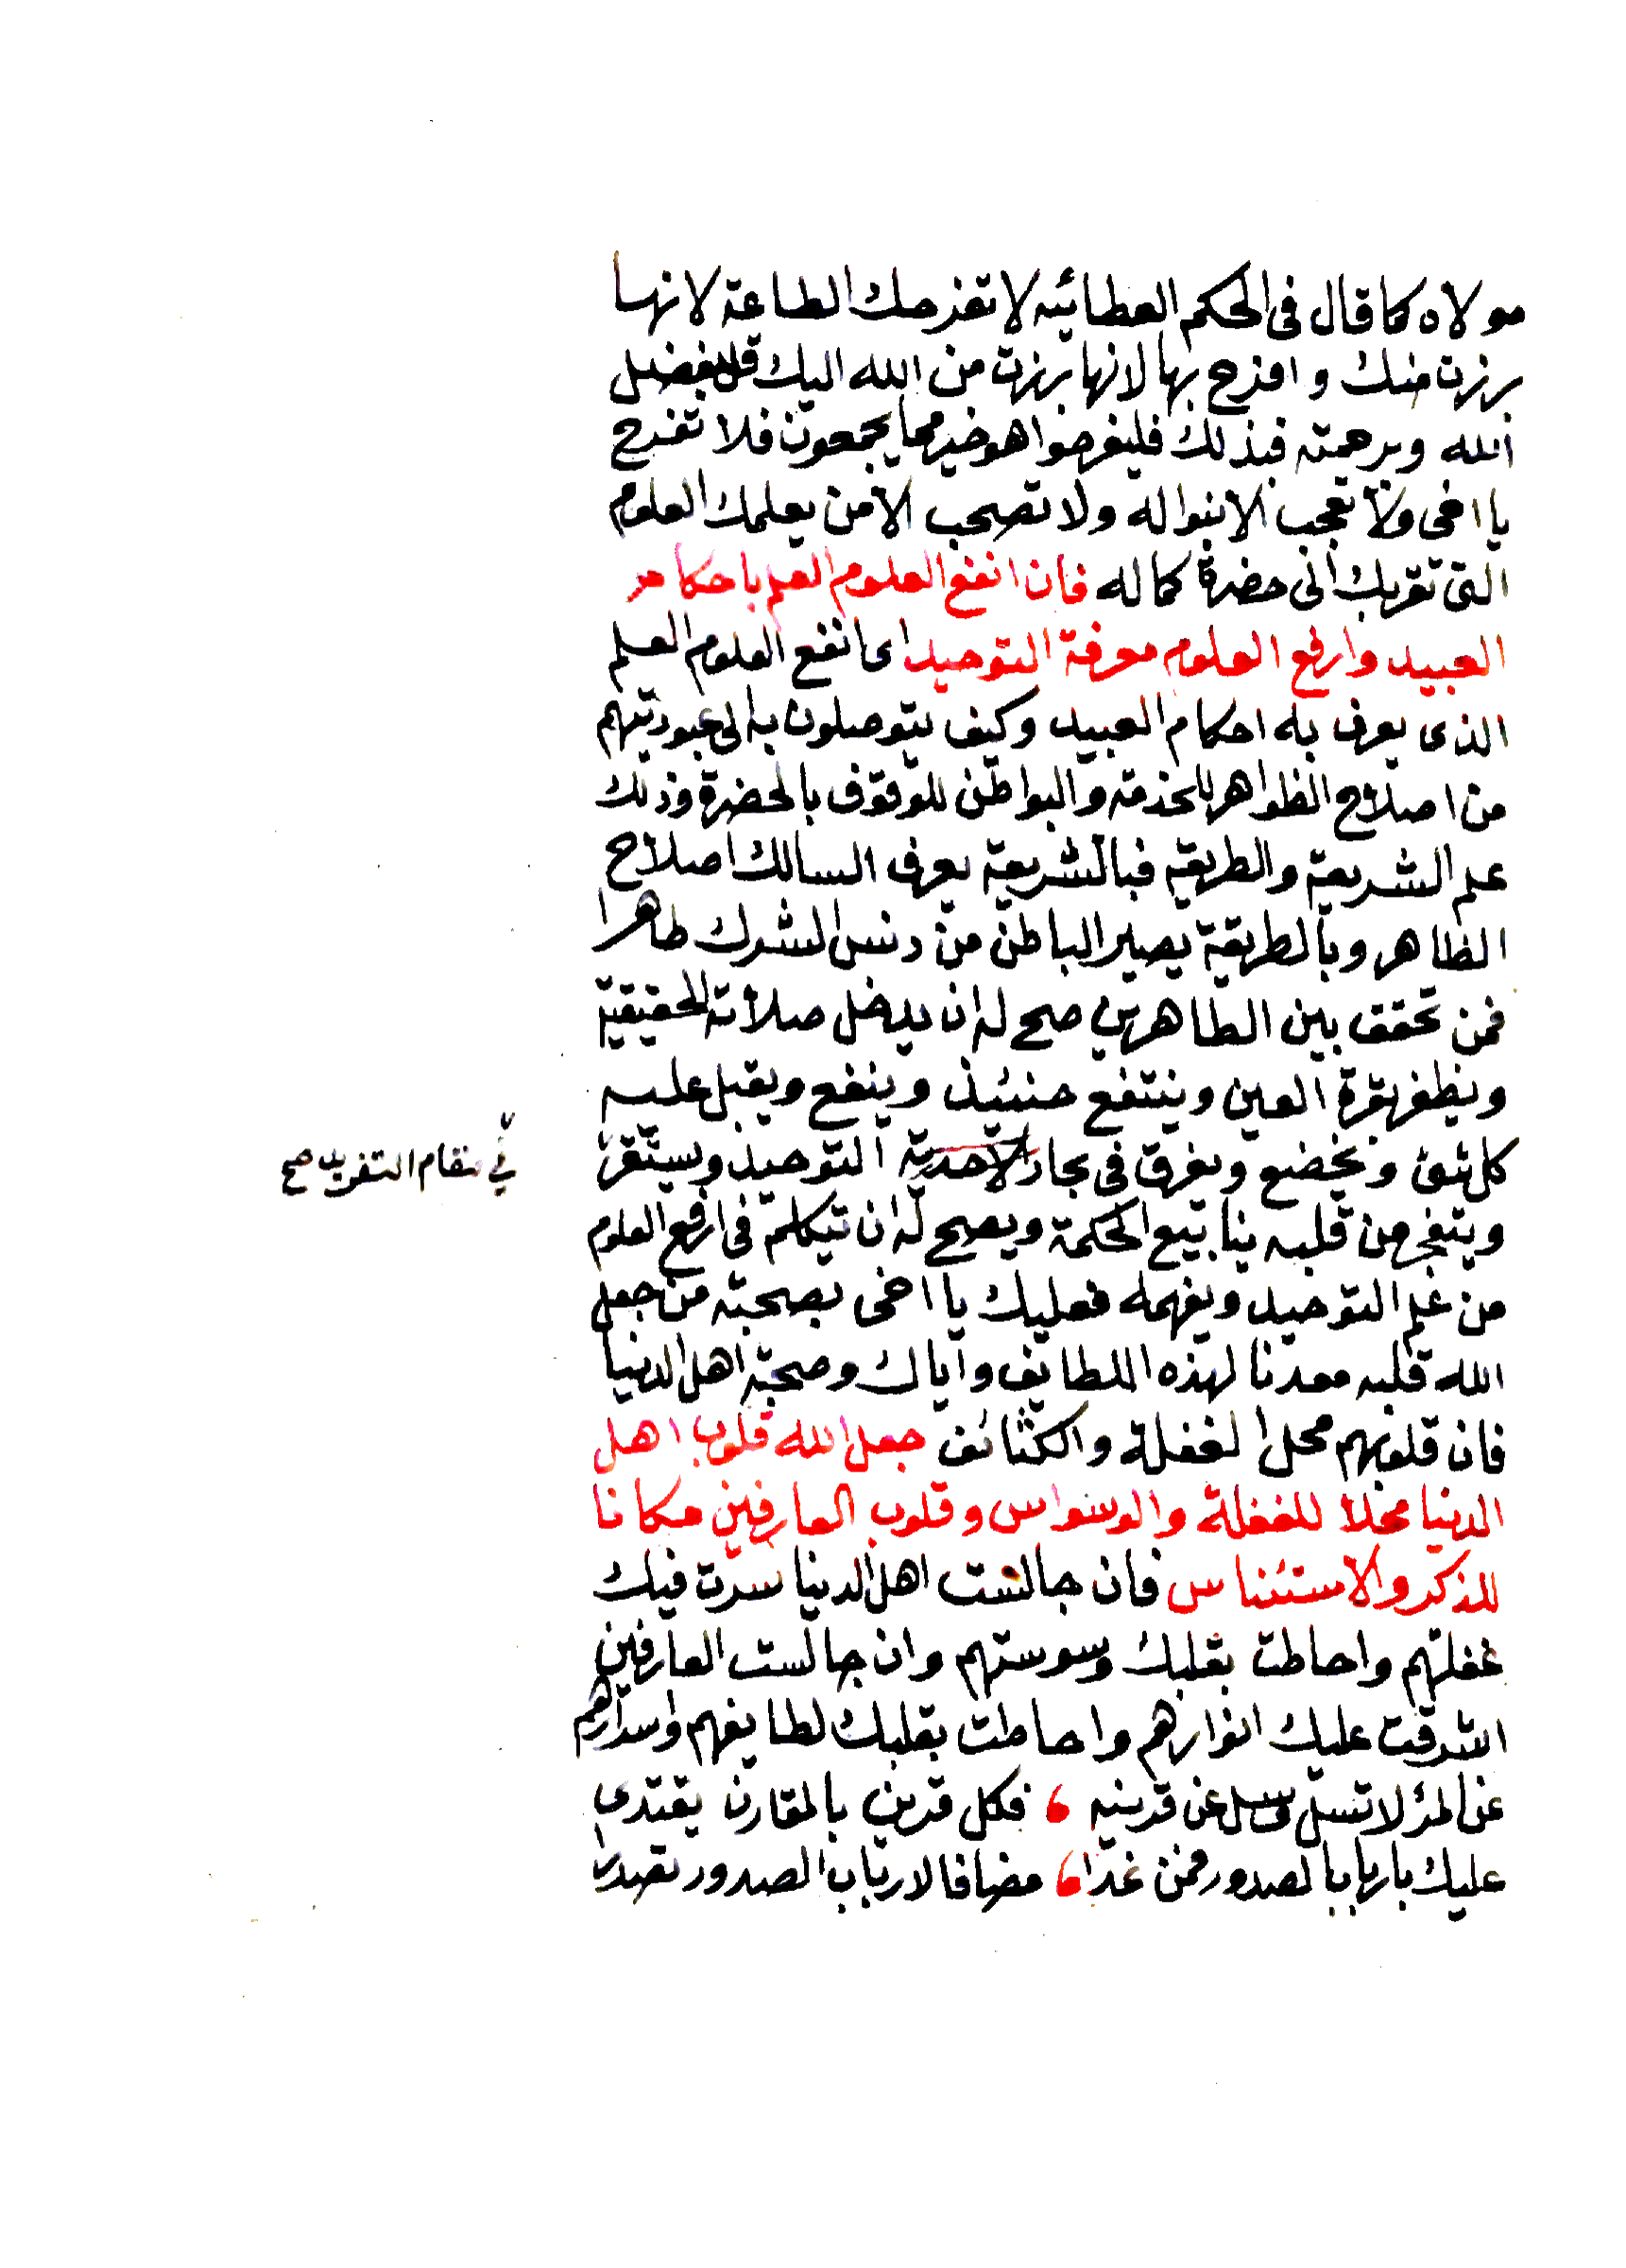 مولاه كما قال فى الحكم العطائيه لا تفرحك الطاعة لانها
برزت منك وافرح بها لانها برزت من الله اليك قل بفضل
الله وبرحمته فبذلك فليفرحوا هو خير مما يجمعون فلا تفرح
يا اخى ولا تعجب الا بنواله ولا تصحب الا من يعلمك العلوم
التى تقربك الى حضرة كماله فان انفع العلوم العلم باحكام
العبيد وارفع العلوم معرفة التوحيد اى انفع العلوم العلم
الذى يعرف به احكام العبيد وكيف يتوصلون به الى عبوديتهم
من اصلاح الظواهر بالخدمة والبواطن للوقوف بالحضرة وذلك
علم الشريعة والطريقة فبالشريعة يعرف السالك اصلاح
الظاهر وبالطريقة يصير الباطن من دنس الشرك طاهرا
فمن تحقق بين الطاهرين صح له ان يدخل صلاته الحقيقية
ويظفر بقرة العين وينتفع حينئذ وينفع ويقبل عليه
كل شئ ويخضع ويغرق فى بحار الاحدية التوحيد ويستقر
في مقام التفريد صح
ويتفجر من قلبه ينابيع الحكمة ويصح له ان يتكلم فى ارفع العلوم
من علم التوحيد ويفهمه فعليك يا اخى بصحبة من جعل
الله قلبه معدنا لهذه اللطايف واياك وصحبة اهل الدنيا
فان قلوبهم محل الغفلة والكثائف جعل الله قلوب اهل
الدنيا محلا للغفلة والوسواس وقلوب العارفين مكانا
للذكر والاستئناس فان جالست اهل الدنيا سرت فيك
غفلتهم واحاطت بقلبك وسوستهم وان جالست العارفين
اشرقت عليك انوارهم واحاطت بقلبك لطايفهم واسرارهم
عن المرء لا تسل وسل عن قرينه ، فكل قرين بالمقارن يقتدى
عليك بارباب الصدور فمن غدا ، مضافا لارباب الصدور تصدرا